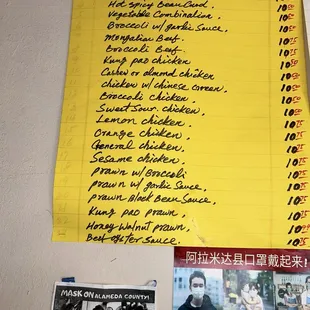 Hot spicy Bean Curd. 10.50
Vegetable Combination. 10.50
Broccoli w/ garlic Sauce, 10.50
Mongolian Beef. 10.75
Broccoli Beef. 10.75
Kung pao chicken 10.50
Cashew or almond chicken 10.50
chicken w/ chinese green. 10.50
Broccoli chicken, 10.50
Sweet Sour. chicken, 10.25
Lemon chicken 10.25
Orange chicken. 10.25
General chicken. 10.25
Sesame chicken. 10.25
prawn w/ Broccoli 10.75
prawn w/ garlic Sauce, 10.75
prawn Black Bean Sauce, 10.75
Kung pao prawn, 10.75
Honey Walnut prawn, 10.75
Beef oyster Sauce. 10.75
阿拉米达县口罩戴起来!
MASK ON ALAMEDA COUNTY!